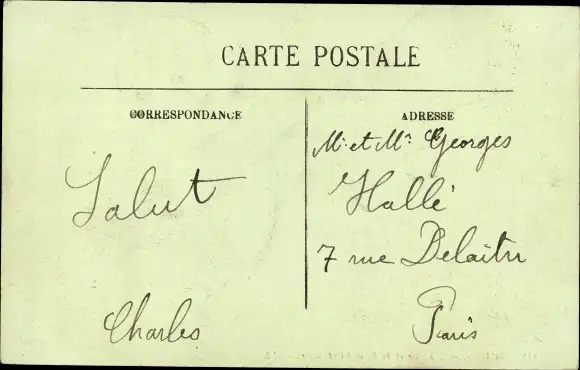 CARTE POSTALE
CORRESPONDANCE
Salut
Charles
ADRESSE
Mr et Mme Georges
Hallé
7 rue Delaitre
Paris